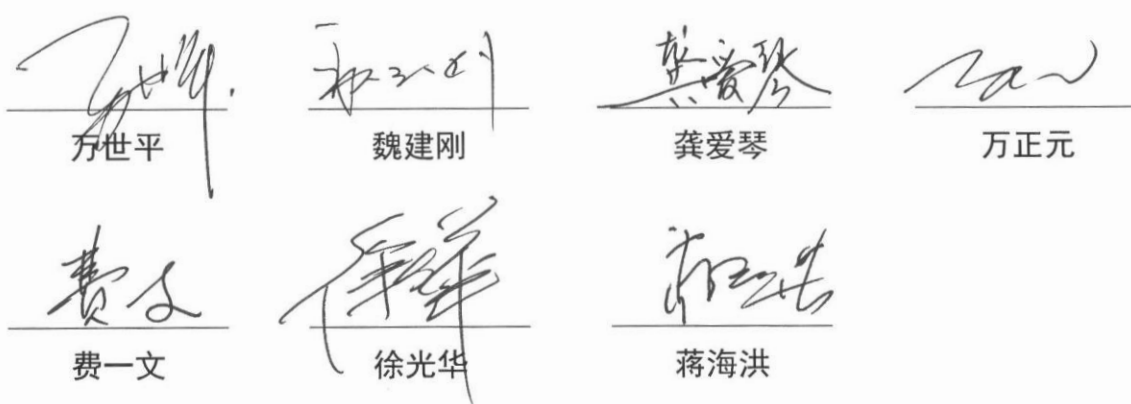 万世平 魏建刚 龚爱琴 万正元
费一文 徐光华 蒋海洪